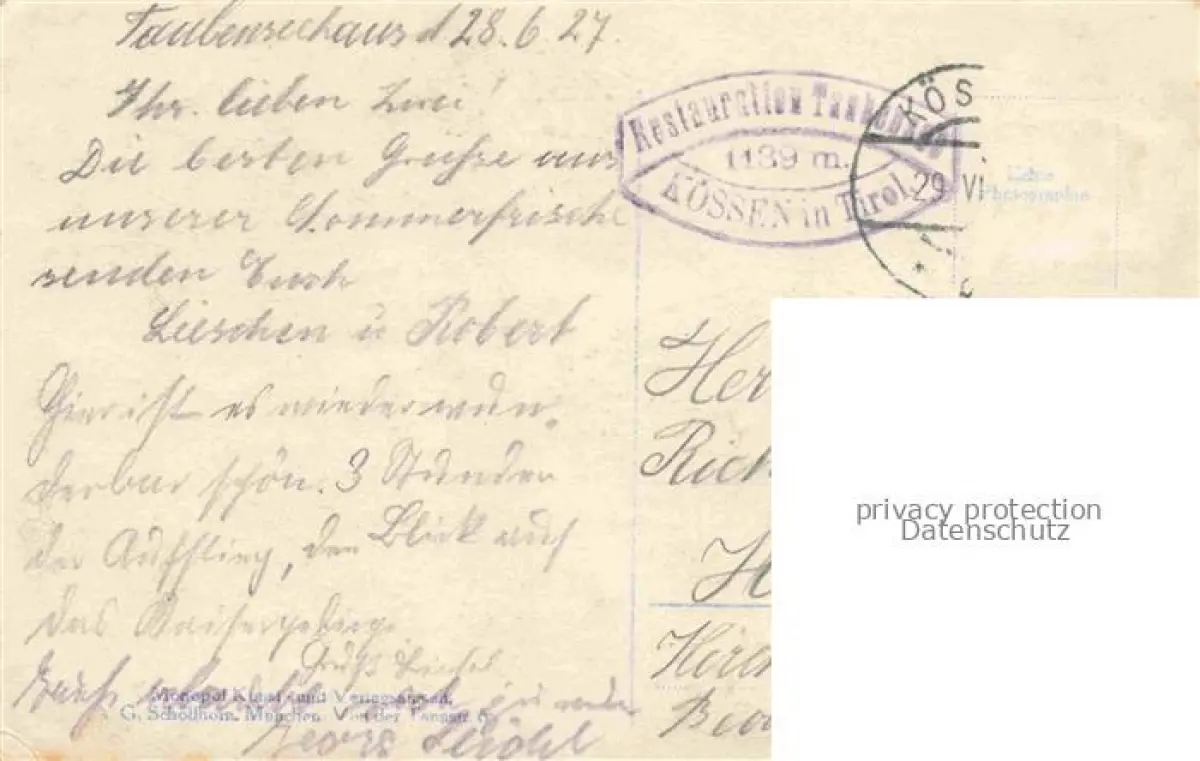 Taubenseehaus d 28.6.27.
Ihr lieben Zwei!
Die besten Grüsse aus
unserer Sommerfrische
senden Euch
Lieschen u Robert
Hier ist es wieder wun-
derbar schön. 3 Stunden
der Aufstieg, den Blick auf
das Kaisergebirge.
Gruß
Georg
Monopol Kunst- und Verlagsanstalt
G. Schöllhorn, München, Von der Tannstr.
Restauration Taubensee
1139 m.
KÖSSEN in Tirol.
KÖS
29 VI
Echte
Photographie
Her
Rich
H
privacy protection
Datenschutz